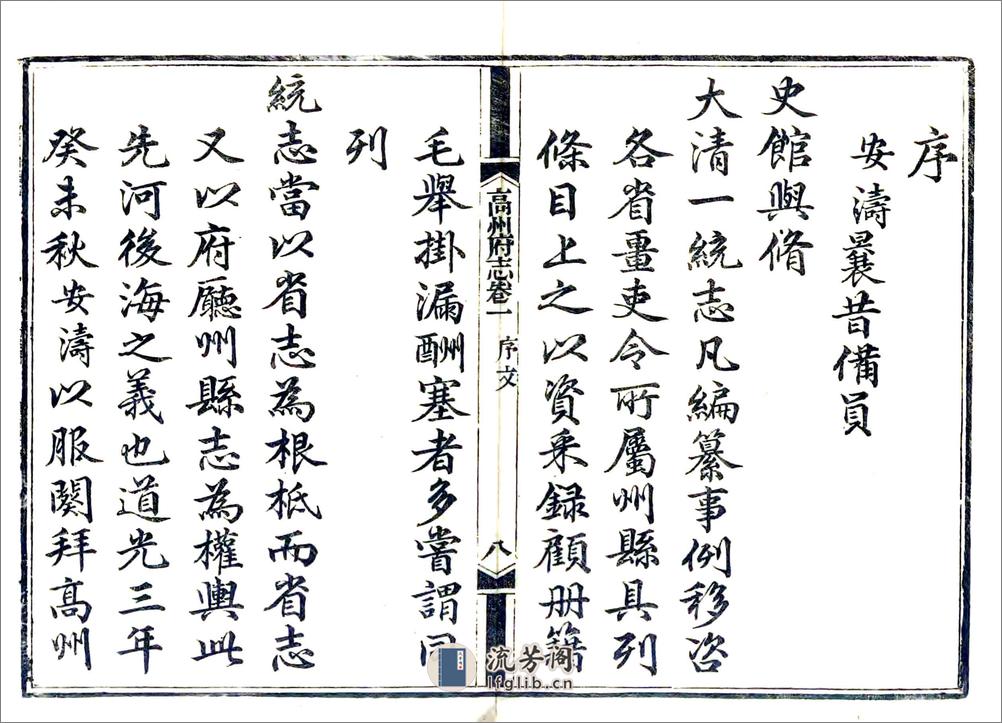 序
安濤曩昔備員
史館與脩
大清一統志凡編纂事例移咨
各省畺吏令所屬州縣具列
條目上之以資采録顧册籍
高州府志卷一 序文 八
毛舉掛漏酬塞者多嘗謂
列
統志當以省志為根柢而省志
又以府廳州縣志為權輿此
先河後海之義也道光三年
癸未秋安濤以服闋拜高州
流芳阁
lfglib.cn